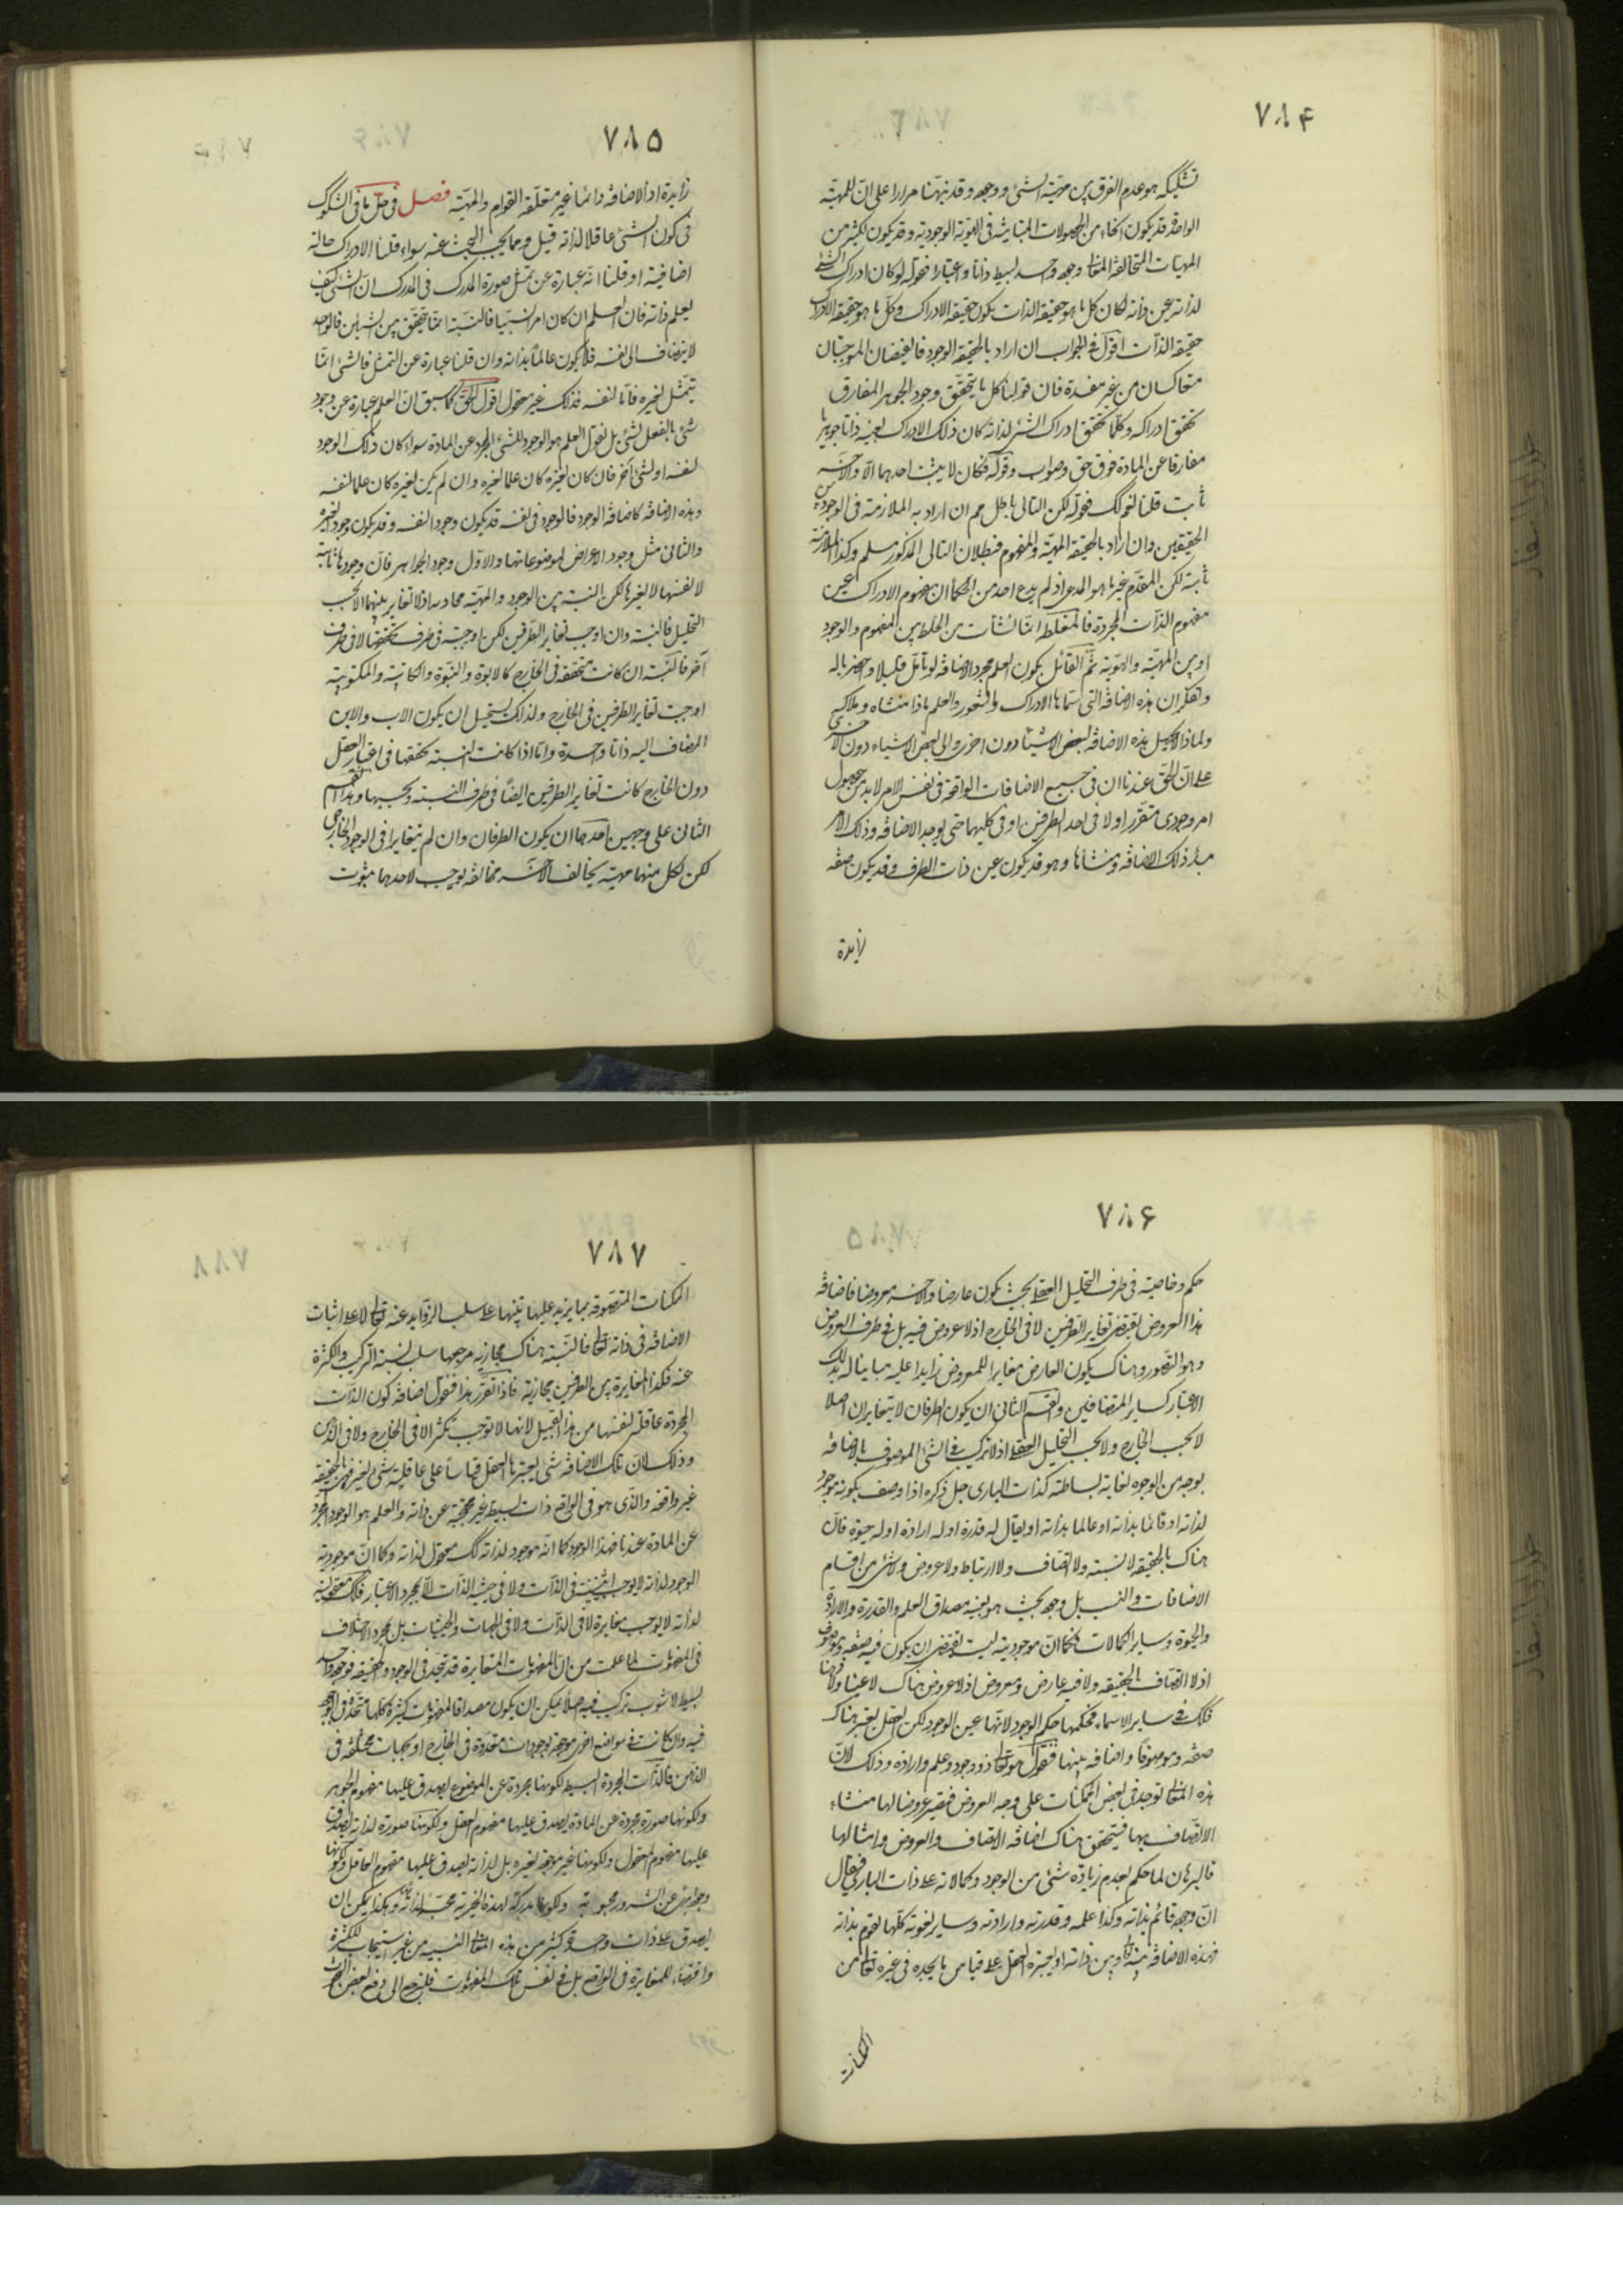 ٧٨۴
تشكيكه هو عدم الفرق بين مهية الشئ و وجهه وقد نبهنا مرارا على ان للمهية
الواحدة قد يكون انحاء من الحصولات المتباينة فى الهوية الوجودية وقد يكون لكثير من
المهيات المتخالفة المعانى وجود واحد بسيط ذاتا واعتبارا فقوله لو كان ادراك الشئ
لذاته عين ذاته لكان كل ما هو حقيقة الذات يكون حقيقة الادراك وكل ما هو حقيقة الادراك
حقيقة الذات اقول فى الجواب ان اراد بالحقيقة الوجود فالقضيتان الموجبتان
متعاكستان من غير مفسدة فان قولنا كل ما يتحقق وجود الجوهر المفارق
تحقق ادراكه وكلما تحقق ادراك الشئ لذاته كان ذلك الادراك بعينه ذاتا جوهريا
مفارقا عن المادة فهو حق وصواب وقوله فكان لا يثبت احدهما الا والآخر
ثابت قلنا نعم كذلك فقوله لكن التالى باطل مم ان اراد به الملازمة فى الوجود بين
الحقيقتين وان اراد بالحقيقة المهية والمفهوم فبطلان التالى المذكور مسلم وكذا الملازمة
ثابتة لكن المقدم غير ما هو المدعى اذ لم يدع احد من الحكماء ان مفهوم الادراك عين
مفهوم الذات المجردة فالمغلطة انما نشأت من الخلط بين المفهوم والوجود
او بين المهية والهوية ثم القائل بكون العلم مجرد الاضافة لو تأمل قليلا واحضر باله
وتفكر ان هذه الاضافة التى سماها الادراك والشعور والعلم ماذا منشاه وملاكه
ولماذا لا يحصل هذه الاضافة لبعض الاشياء دون اخرى والى بعض الاشياء دون الاخرى
على ان الحق عندنا ان فى جميع الاضافات الواقعة فى نفس الامر لا بد من حصول
امر وجودى متقرر اولا فى احد الطرفين او فى كليهما حتى يوجد الاضافة وذلك الامر
مبدء ذلك الاضافة ومنشاها وهو قد يكون عين ذات الطرف وقد يكون صفة
زايدة
٧٨٥
زايدة اذ الاضافة دائما غير مستقلة القوام والمهية فصل فى حل باقى الشكوك
فى كون الشئ عاقلا لذاته قيل ومما يجب البحث عنه سواء قلنا الادراك حالة
اضافية او قلنا انه عبارة عن تمثل صورة المدرك فى المدرك ان الشئ كيف
يعلم ذاته فان العلم ان كان امرا نسبيا فالنسبة انما تتحقق بين الشيئين فالواحد
لا ينضاف الى نفسه فلا يكون عالما بذاته وان قلنا عبارة عن التمثل فالشئ انما
يتمثل لغيره فاما لنفسه فذلك غير معقول اقول الحق كما سبق ان العلم عبارة عن وجود
شئ بالفعل لشئ بل نقول العلم هو الوجود للشئ المجرد عن المادة سواء كان ذلك الوجود
لنفسه او لشئ آخر فان كان لغيره كان علما لغيره وان لم يكن لغيره كان علما لنفسه
وهذه الاضافة كاضافة الوجود فالوجود فى نفسه قد يكون وجودا لنفسه وقد يكون وجودا لغيره
والثانى مثل وجود الاعراض لموضوعاتها والاول وجود الجواهر فان وجودها ثابتة
لانفسها لا لغيرها لكن النسبة بين الوجود والمهية مجازية اذ لا تغاير بينهما الا بحسب
التحليل فالنسبة وان اوجبت تغاير الطرفين لكن اوجبته فى ظرف تحققها لا فى ظرف
آخر فالنسبة ان كانت متحققة فى الخارج كالابوة والبنوة والكاتبية والمكتوبية
اوجبت تغاير الطرفين فى الخارج ولذلك يستحيل ان يكون الاب والابن
المضاف اليه ذاتا واحدة واما اذا كانت النسبة تحققها فى اعتبار العقل
دون الخارج كانت تغاير الطرفين ايضا فى ظرف النسبة وبحسبها وهذا القسم
الثانى على وجهين احدهما ان يكون الطرفان وان لم يتغايرا فى الوجود الخارجى
لكن لكل منهما مهية يخالف الآخر مخالفة يوجب لاحدهما ثبوت
٧٨۶
حكم وخاصية فى ظرف التحليل العقلى بحيث يكون عارضا والآخر معروضا فاضافة
هذا العروض يقتضى تغاير الطرفين لا فى الخارج اذ لا عروض فيه بل فى ظرف العروض
وهو التصور وهناك يكون العارض مغايرا للمعروض زايدا عليه مباينا له بذلك
الاعتبار كساير المتضايفين والقسم الثانى ان يكون الطرفان لا يتغايران اصلا
لا بحسب الخارج ولا بحسب التحليل العقلى اذ لا تركيب فى الشئ الموصوف بالاضافة
بوجه من الوجوه لغاية بساطته كذات البارى جل ذكره اذا وصف بكونه موجود
لذاته او قائما بذاته او عالما بذاته او يقال له قدرة او له ارادة او له حيوة فان
هناك بالحقيقة لا نسبة ولا اتصاف ولا ارتباط ولا عروض ولا شئ من اقسام
الاضافات والنسب بل وجود بحيث هو بعينه مصداق العلم والقدرة والارادة
والحيوة وساير الكمالات فكما ان موجوديته ليست يقتضى ان يكون فيه صفة وموصوف
اذ لا اتصاف بالحقيقة ولا فيه عارض ومعروض اذ لا عروض هناك لا عينا ولا ذهنا
فكذلك فى ساير الاسماء فحكمها حكم الوجود لانها عين الوجود لكن العقل يعتبر هناك
صفة وموصوفا واضافة بينها فنقول هو تعالى ذو وجود وعلم وارادة وذلك لان
هذه المعانى توجد فى بعض الممكنات على وجه العروض فيصير عروضا لها منشاء
الاتصاف بها فيتحقق هناك اضافة الاتصاف والعروض وامثالها
فالبرهان لما حكم بعدم زيادة شئ من الوجود وكمالاته على ذات البارى فيقال
ان وجوده قائم بذاته وكذا علمه وقدرته وارادته وساير نعوته كلها تقوم بذاته
فهذه الاضافة بينه تعالى وبين ذاته او يعتبره العقل على قياس ما يجده فى غيره تعالى من
الممكنات
٧٨٧
الممكنات المتصوفة بما يزيد عليها تنبيها على سلب الزوايد عنه تعالى لا على اثبات
الاضافة فى ذاته تعالى فالنسبة هناك مجازية مرجعها سلب نسبة التركيب والكثرة
عنه فكذا المغايرة بين الطرفين مجازية فاذا تقرر هذا فنقول اضافة كون الذات
المجردة عاقلة لنفسها من هذا القبيل لانها لا توجب تكثرا لا فى الخارج ولا فى الذهن
وذلك لان تلك الاضافة شئ يعتبرها العقل قياسا على عاقلية شئ لغيره فهى بالحقيقة
غير واقعة والذى هو فى الواقع ذات بسيط غير محتجبة عن ذاته والعلم هو الوجود المجرد
عن المادة عندنا فهذا الوجود كما انه موجود لذاته كذلك معقول لذاته وكما ان موجودية
الوجود لذاته لا يوجب اثنينية فى الذات ولا فى حيثية الذات الا بمجرد الاعتبار فكذلك معقوليته
لذاته لا يوجب مغايرة لا فى الذات ولا فى الجهات والحيثيات بل بمجرد الاختلاف
فى المفهومات لما علمت من ان المفهومات المتغايرة قد تتحد فى الوجود والحقيقة فوجود واحد
بسيط لا شوب تركيب فيه اصلا يمكن ان يكون مصداقا لمفهومات كثيرة كلها متحدة فى الوجود
فيه وان كانت فى مواضع اخرى موجودة بوجودات متعددة فى الخارج او بجهات مختلفة فى
الذهن فالذات المجردة البسيط لكونها مجردة عن الموضوع يصدق عليها مفهوم الجوهر
ولكونها صورة مجردة عن المادة يصدق عليها مفهوم العقل ولكونها صورة لذاته يصدق
عليها مفهوم المعقول ولكونها غير موجودة لغيره بل لذاته يصدق عليها مفهوم العاقل ولكونها
عن الشرور محبوبة ولكونها مدركة لهذه الخيرية محبة لذاته وهكذا يمكن ان
يصدق على ذات واحدة كثير من هذه المعانى النسبية من غير استيجاب للكثرة
واقتضاء للمغايرة فى الواقع بل فى نفس تلك المفهومات فلنرجع الى دفع بعض